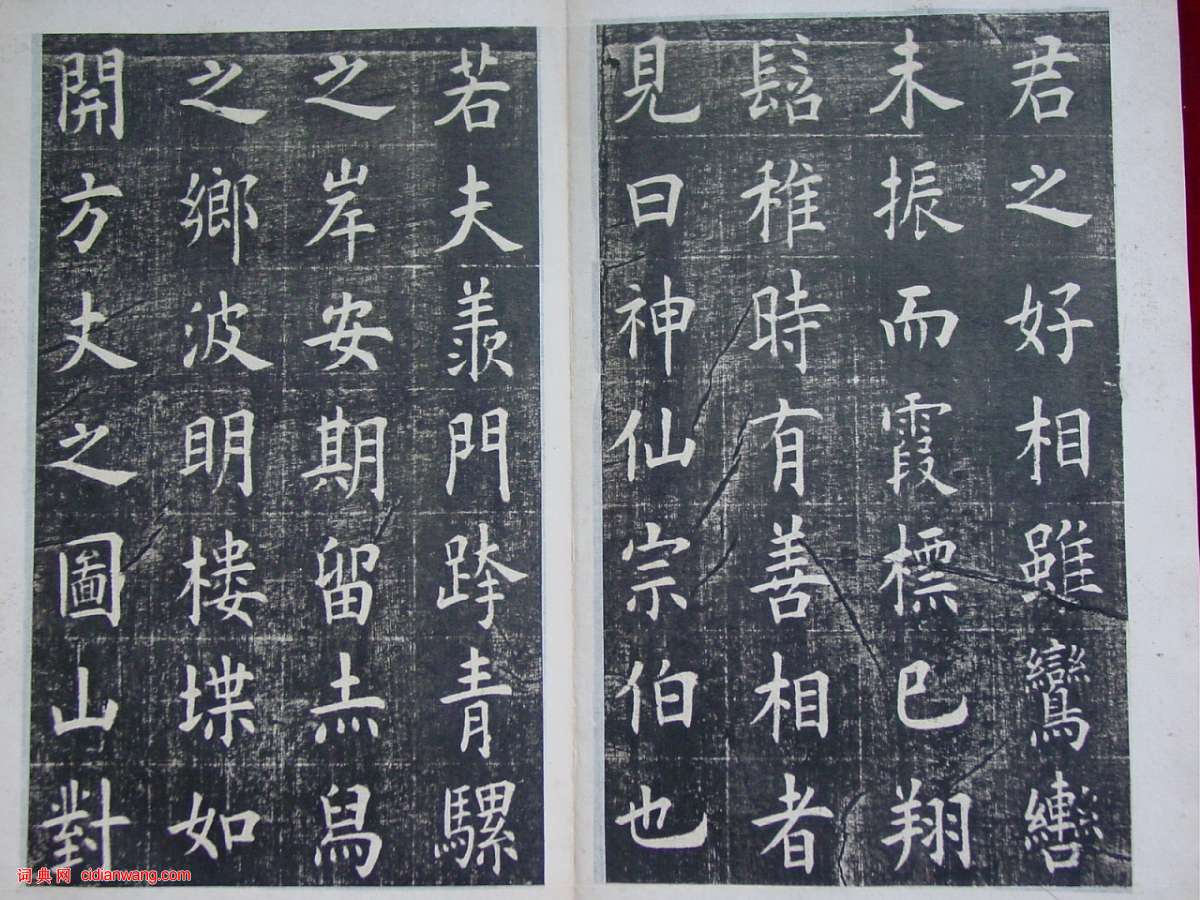 君之好相雖鸞轡
未振而霞標已翔
髫稚時有善相者
見曰神仙宗伯也
若夫羨門跨青騾
之岸安期留赤舄
之鄉波明樓堞如
開方丈之圖山對
词典网 cidianwang.com